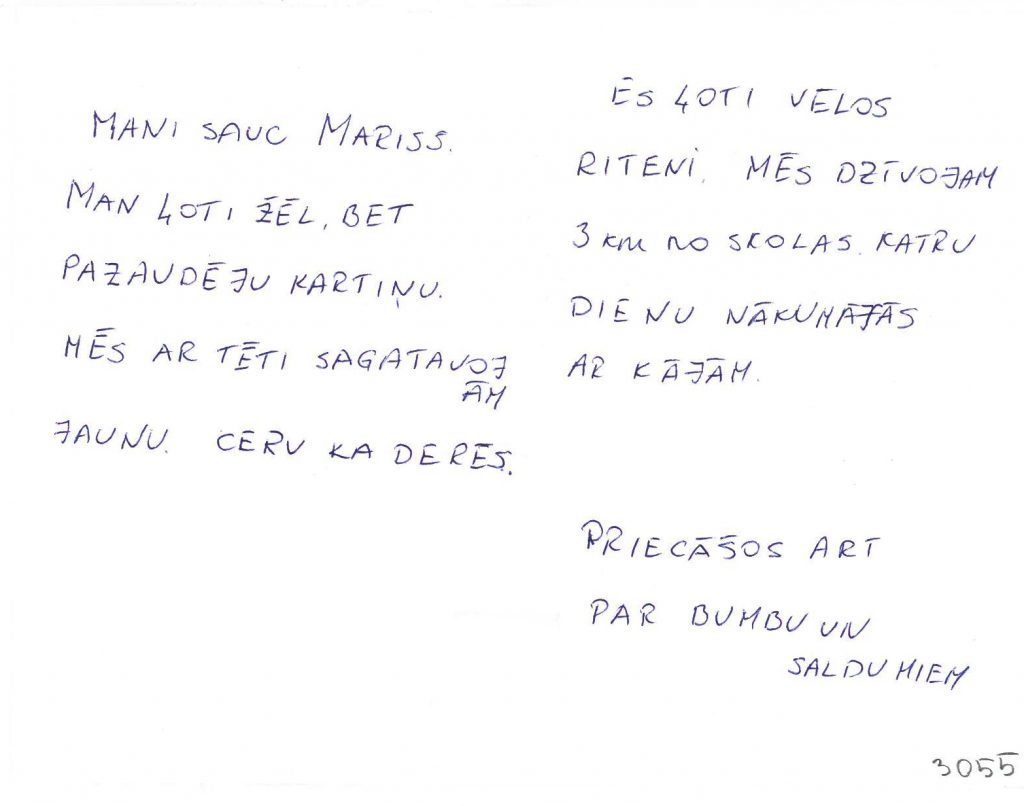 MANI SAUC MARISS.
MAN ĻOTI ŽĒL, BET
PAZAUDĒJU KARTIŅU.
MĒS AR TĒTI SAGATAVOJ
ĀM
JAUNU. CERU KA DERĒS.
ES ĻOTI VĒLOS
RITENI. MĒS DZĪVOJAM
3 KM NO SKOLAS. KATRU
DIENU NĀKUMĀJĀS
AR KĀJĀM.
PRIECĀŠOS ART
PAR BUMBU UN
SALDUMIEM
3055